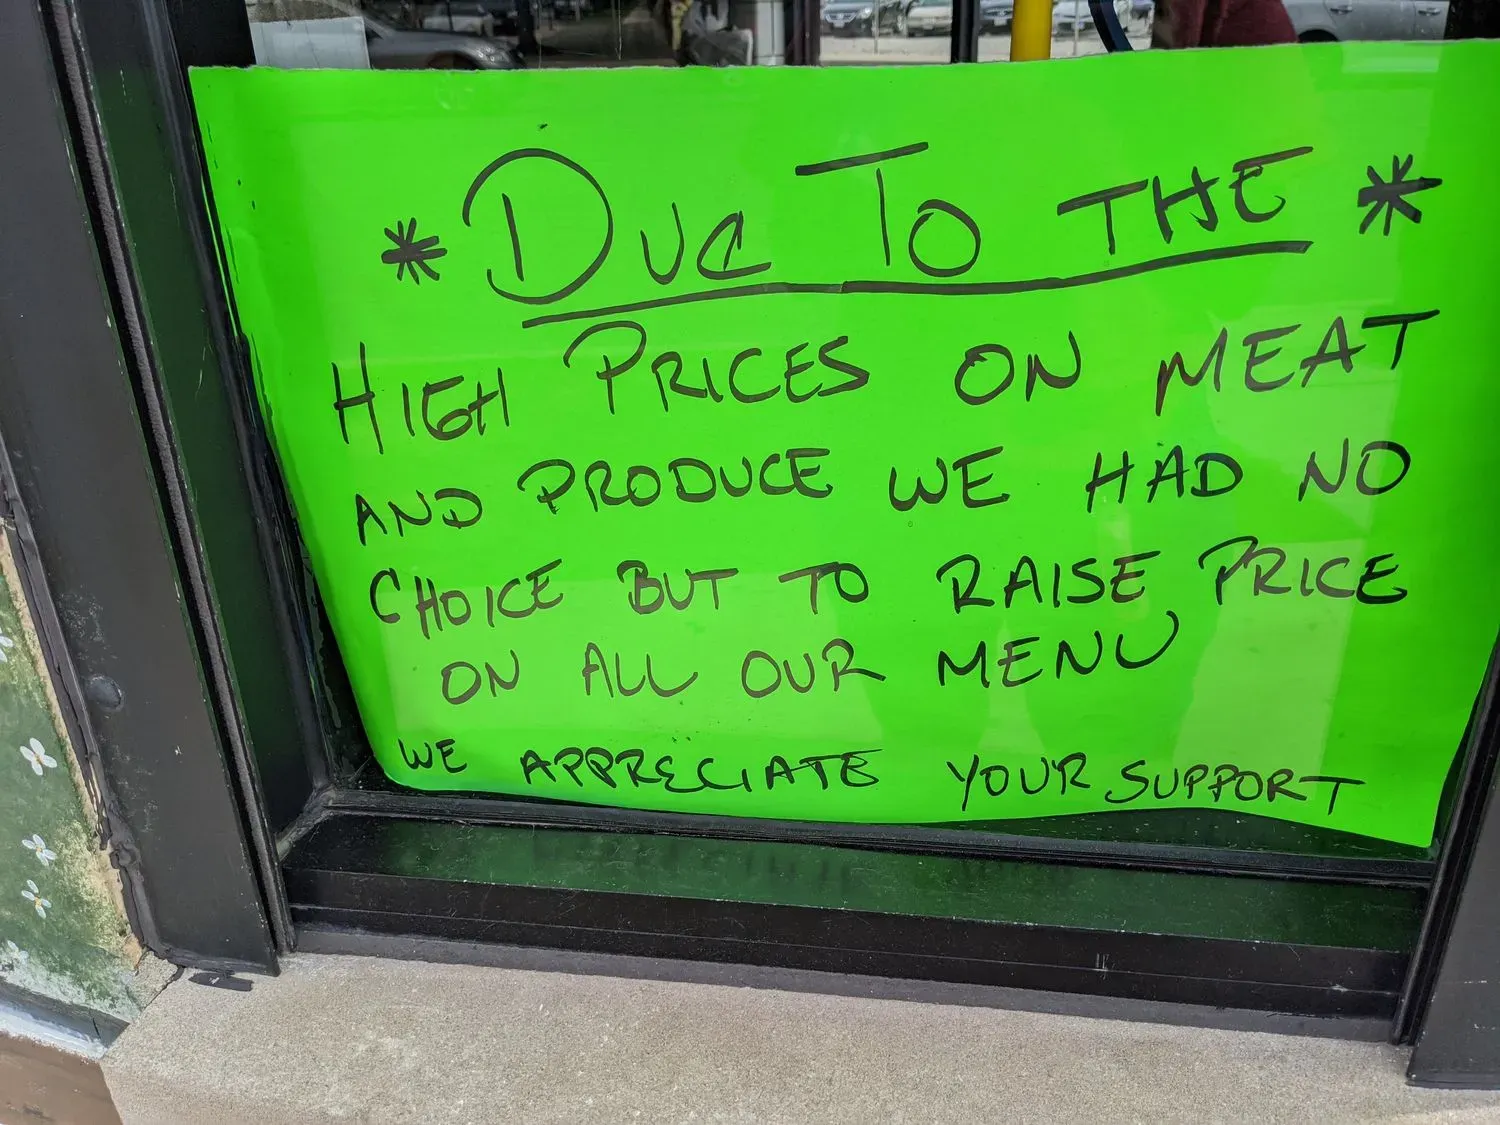 * DUE TO THE *
HIGH PRICES ON MEAT
AND PRODUCE WE HAD NO
CHOICE BUT TO RAISE PRICE
ON ALL OUR MENU
WE APPRECIATE YOUR SUPPORT